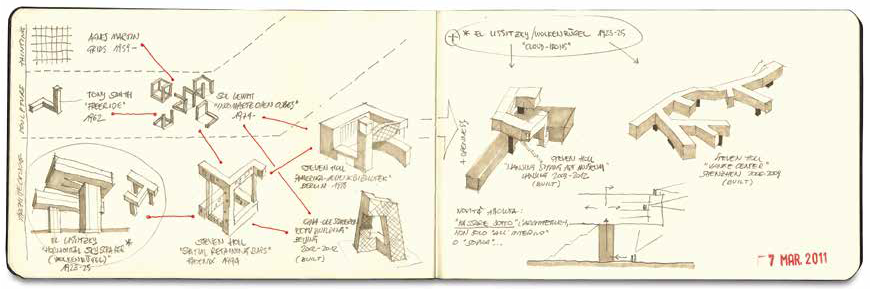 PAINTING
SCULPTURE
ARCHITECTURE
AGNES MARTIN
GRIDS 1959-
TONY SMITH
"FREE RIDE"
1962
SOL LEWITT
"INCOMPLETE OPEN CUBES"
1974
STEVEN HOLL
BERLIN 1988
EL LISSITZKY *
HORIZONTAL SKYSCRAPER
(WOLKENBÜGEL)
1923-25
STEVEN HOLL
"SPATIAL RETAINING BARS"
PHOENIX 1989
CCTV BUILDING
BEIJING
2002-2012
(BUILT)
+ OPENNESS
(+) * EL LISSITZKY/WOLKENBÜGEL 1923-25
"CLOUD-IRONS"
STEVEN HOLL
"NANJING SIFANG ART MUSEUM"
NANJING 2003-2012
(BUILT)
STEVEN HOLL
"VANKE CENTER"
SHENZHEN 2006-2009
(BUILT)
NOVITÀ ASSOLUTA:
"PASSARE SOTTO" L'ARCHITETTURA,
NON SOLO "ALL'INTERNO"
O "SOPRA"...
7 MAR. 2011